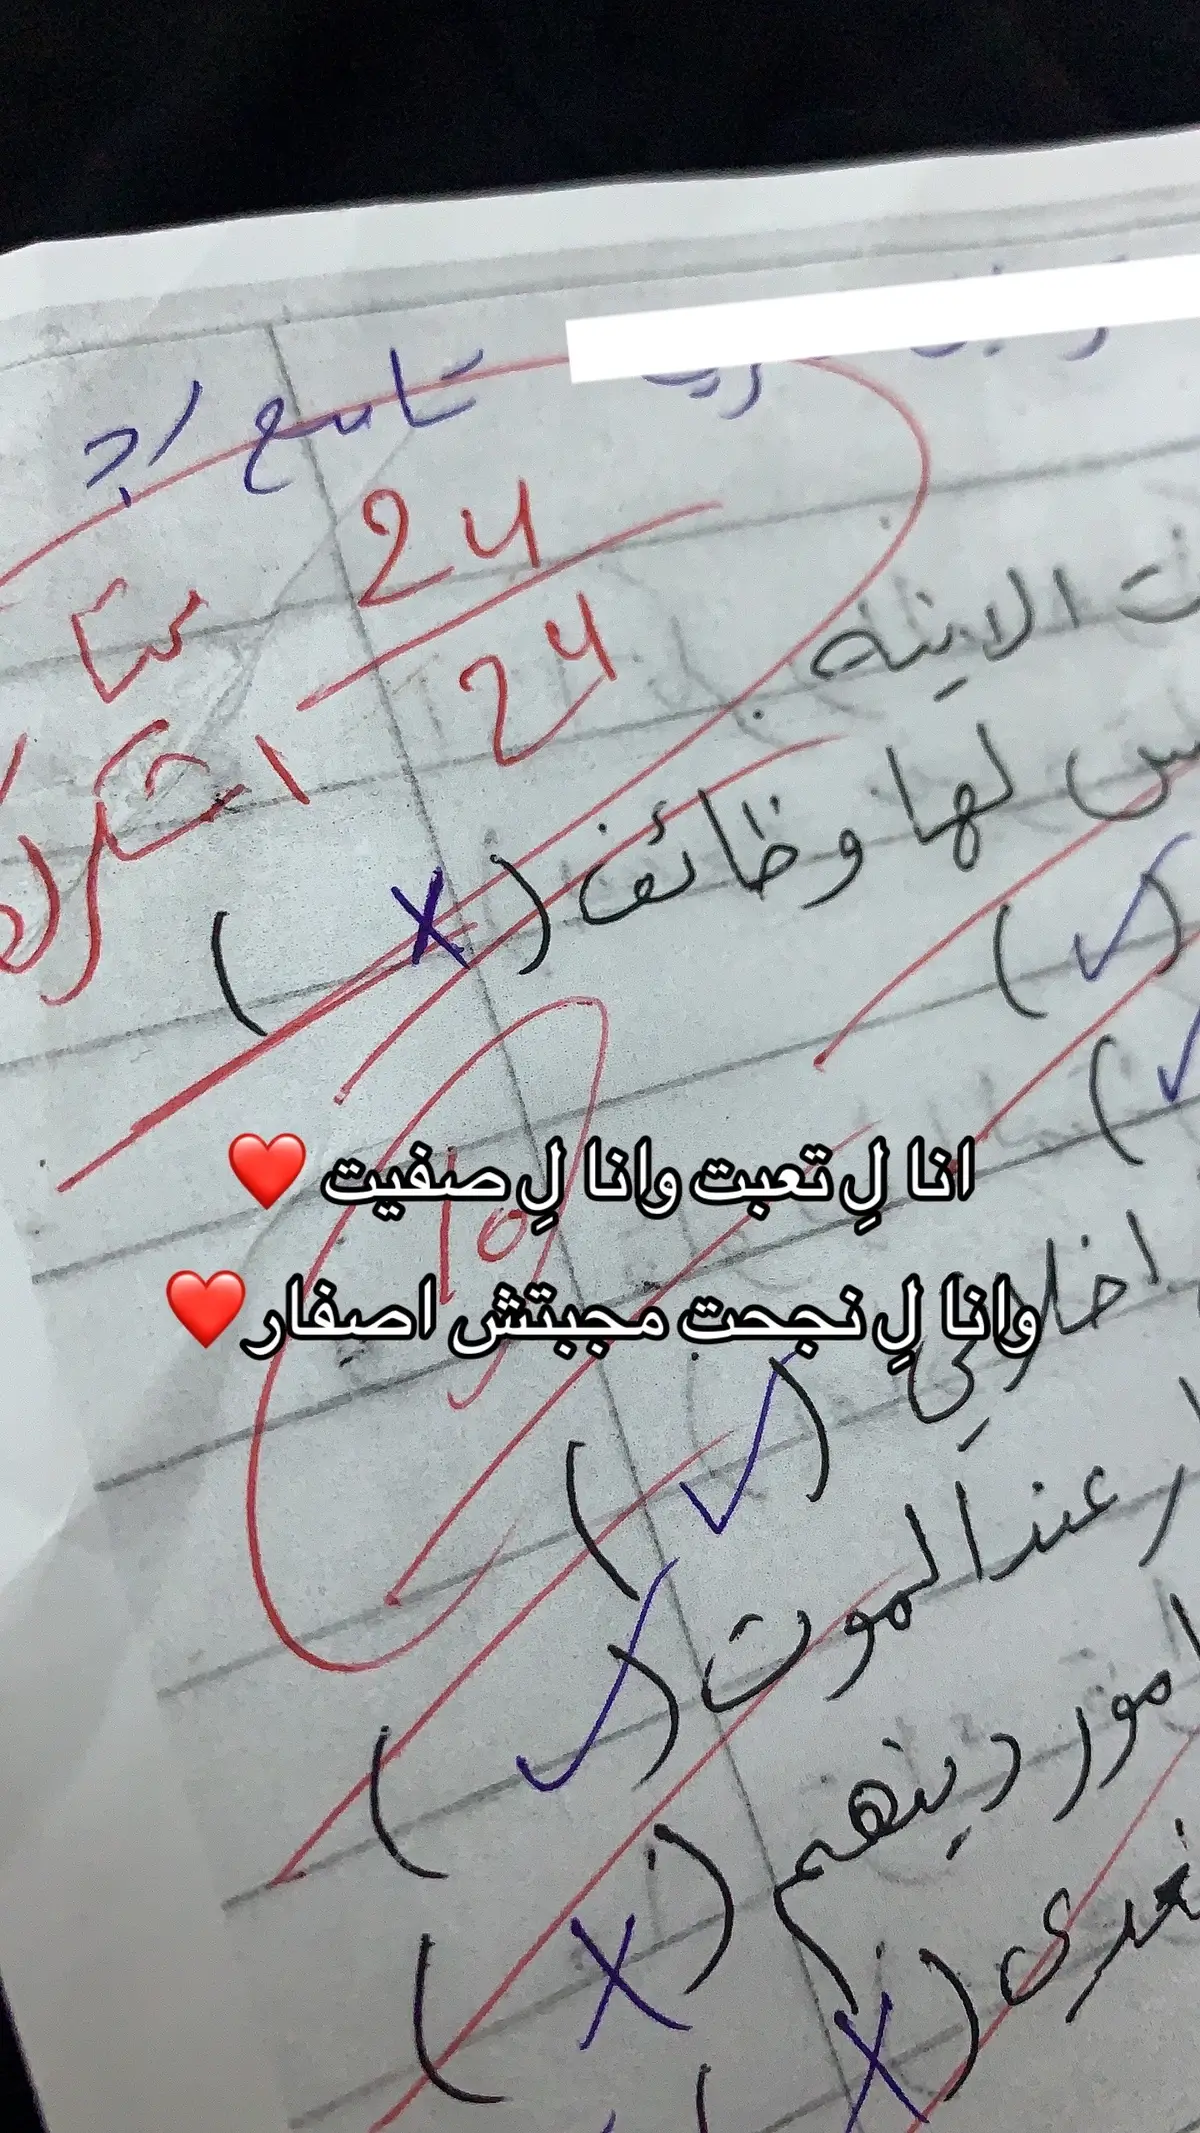 تاسع / ب
24
24
ت الاتيه
س لها وظائف ( X )
( ✓ )
( ✓
10
انا لِ تعبت وانا لِ صفيت ❤️
وانا لِ نجحت مجبتش اصفار❤️
( ✓ )
ر عند الموت ( ✓ )
امور دينهم ( X )
( X )